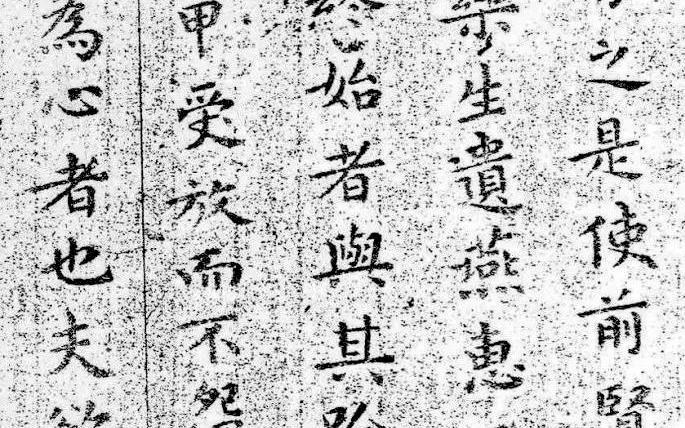 之是使前賢
樂生遺燕惠
終始者與其
甲受放而不怨
為心者也夫